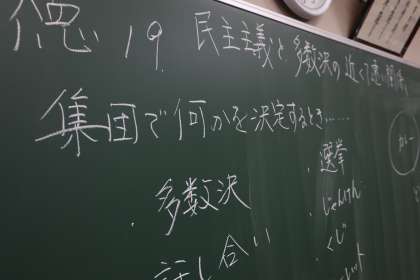 19. 民主主義と多数決の近くて遠い関係
集団で何かを決定するとき……
・多数決
話し合い
・選挙
・じゃんけん
・くじ